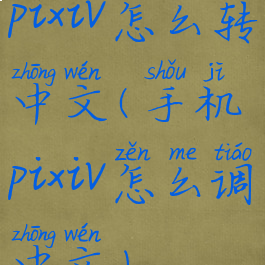 pixiv怎么转
zhōng wén shǒu jī
中文(手机
zěn me tiáo
pixiv怎么调
zhōng wén
中文)